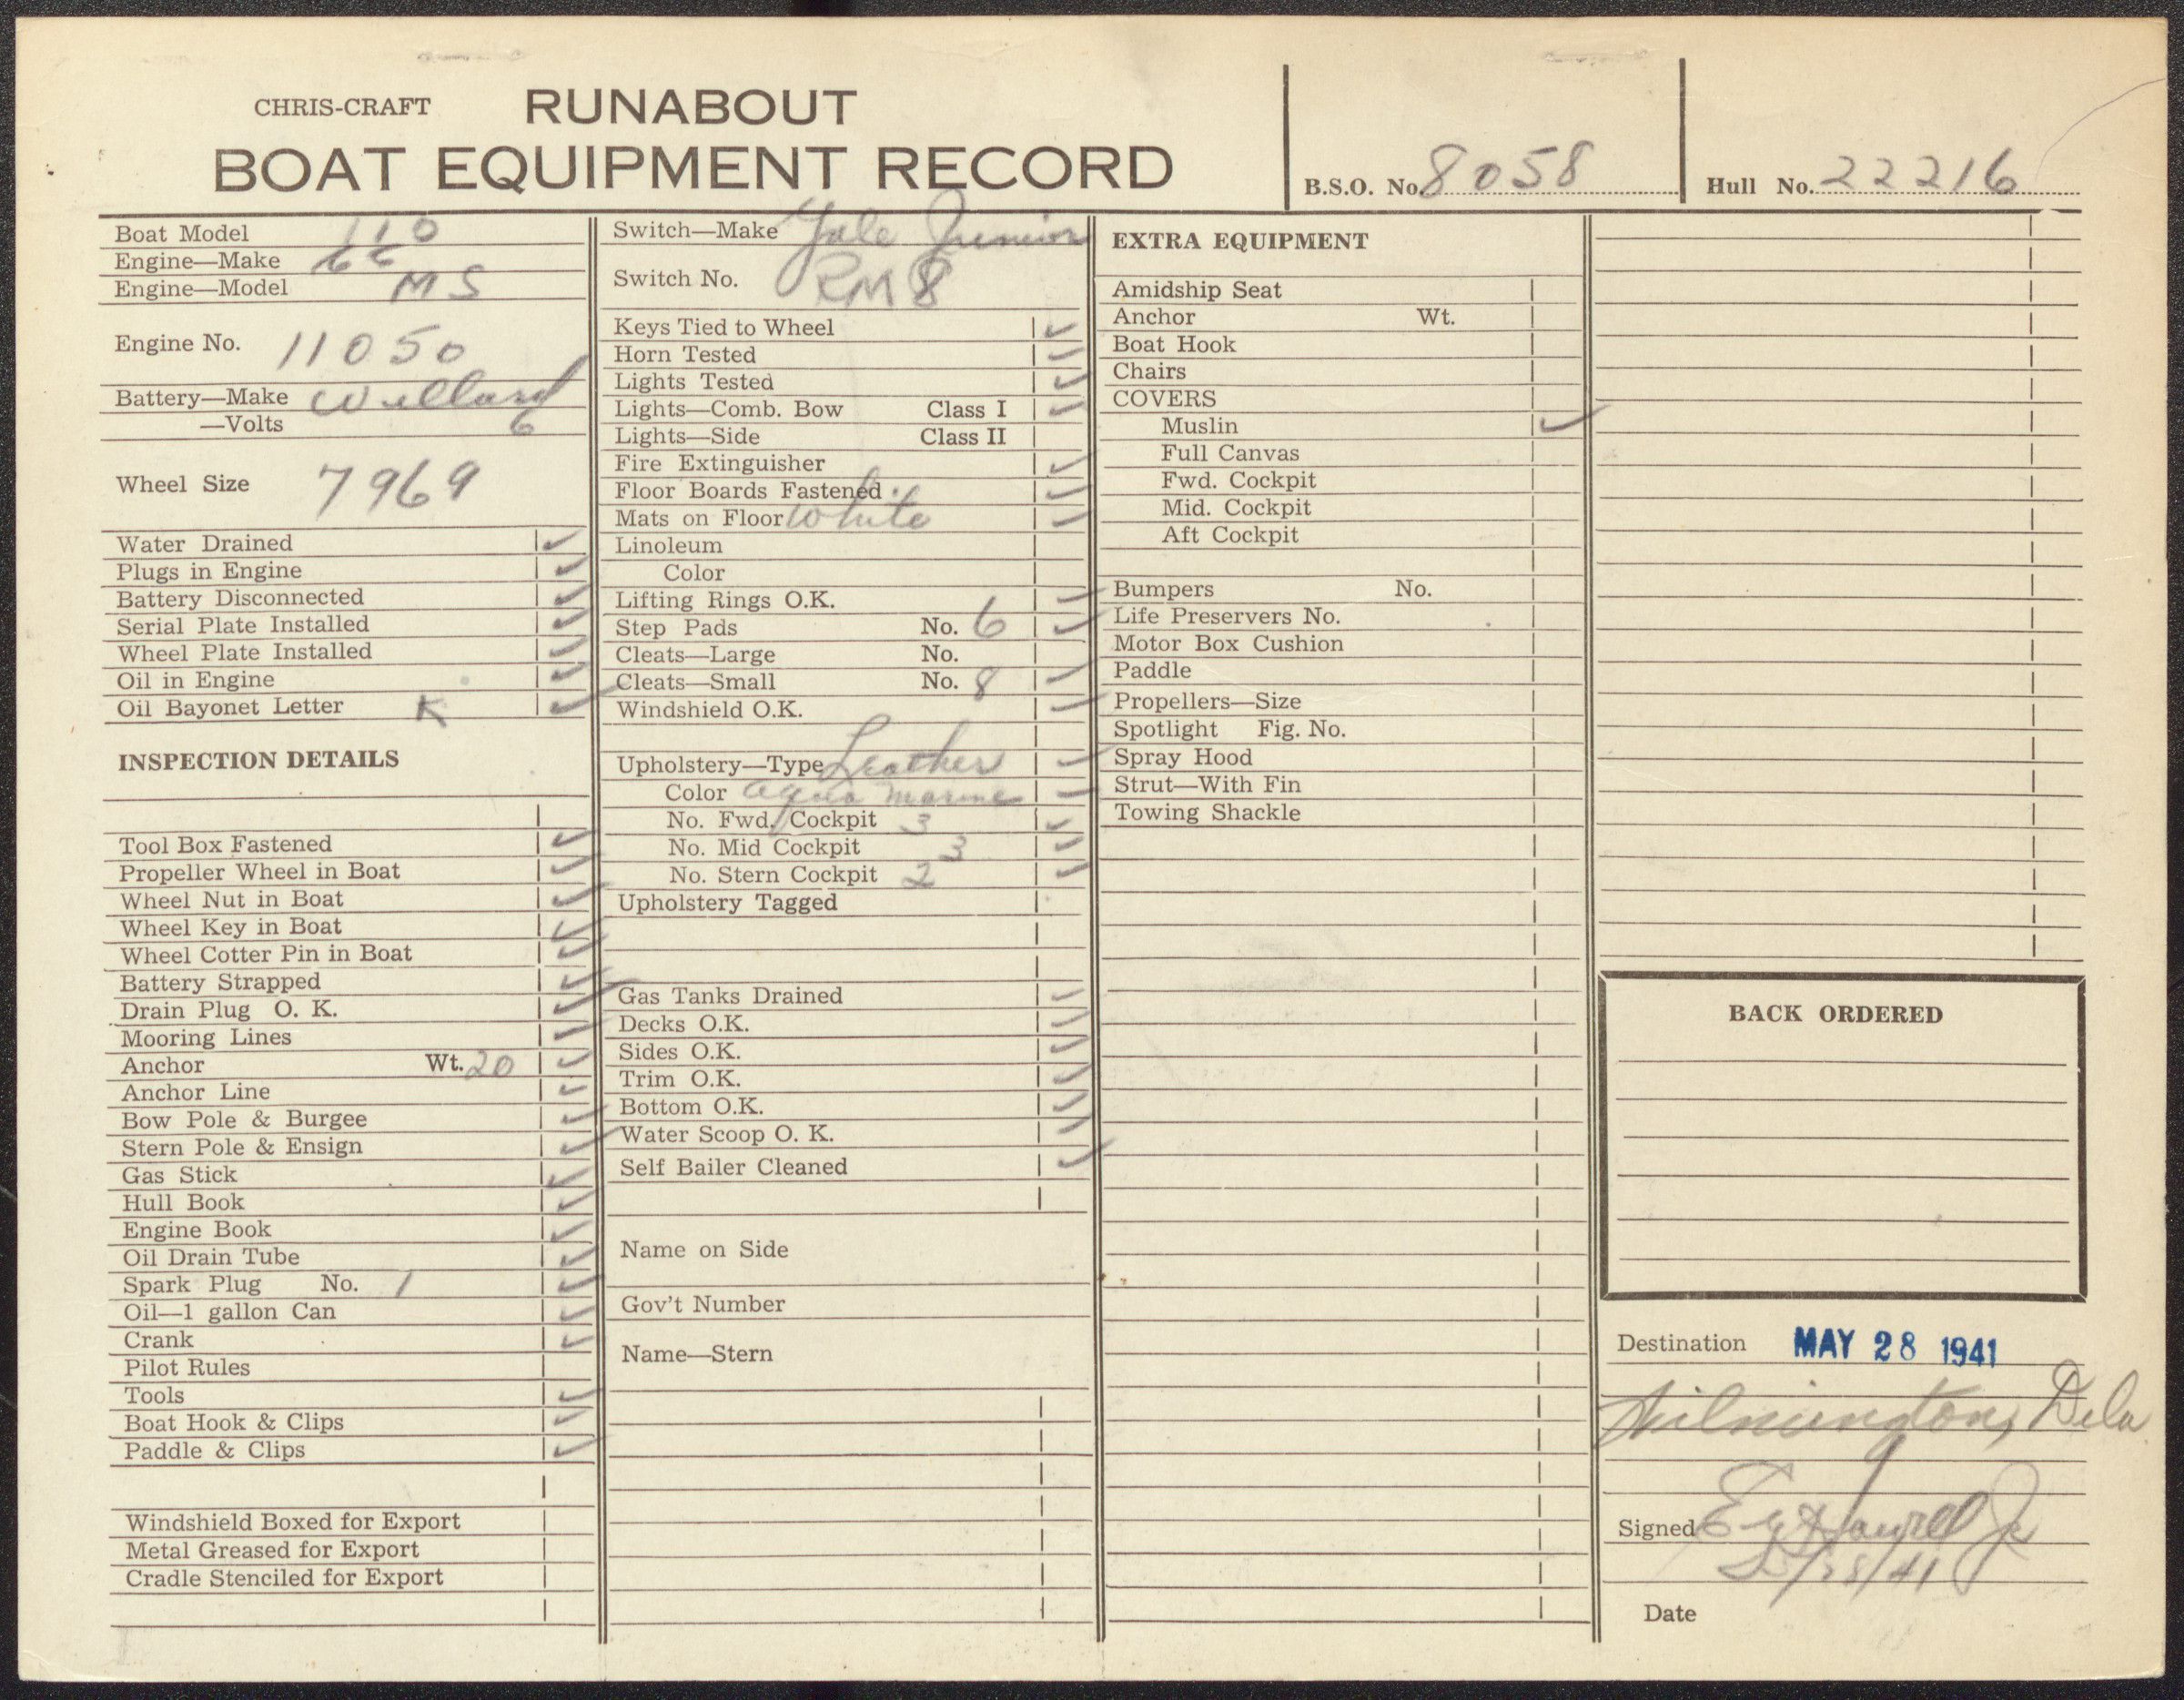 CHRIS-CRAFT RUNABOUT
BOAT EQUIPMENT RECORD
B.S.O. No. 8058
Hull No. 22216
Boat Model 110
Engine—Make
Engine—Model MS
Engine No. 11050
Battery—Make Willard
—Volts 6
Wheel Size 7969
Water Drained ✓
Plugs in Engine ✓
Battery Disconnected ✓
Serial Plate Installed ✓
Wheel Plate Installed ✓
Oil in Engine ✓
Oil Bayonet Letter K ✓
INSPECTION DETAILS
Tool Box Fastened ✓
Propeller Wheel in Boat ✓
Wheel Nut in Boat ✓
Wheel Key in Boat ✓
Wheel Cotter Pin in Boat ✓
Battery Strapped ✓
Drain Plug O. K. ✓
Mooring Lines ✓
Anchor Wt. 20 ✓
Anchor Line ✓
Bow Pole & Burgee ✓
Stern Pole & Ensign ✓
Gas Stick ✓
Hull Book ✓
Engine Book ✓
Oil Drain Tube ✓
Spark Plug No. 1 ✓
Oil—1 gallon Can ✓
Crank ✓
Pilot Rules
Tools ✓
Boat Hook & Clips ✓
Paddle & Clips ✓
Windshield Boxed for Export
Metal Greased for Export
Cradle Stenciled for Export
Switch—Make Yale Junior
Switch No. RM 8
Keys Tied to Wheel ✓
Horn Tested ✓
Lights Tested ✓
Lights—Comb. Bow Class I ✓
Lights—Side Class II
Fire Extinguisher ✓
Floor Boards Fastened ✓
Mats on Floor White ✓
Linoleum
Color
Lifting Rings O.K. ✓
Step Pads No. 6 ✓
Cleats—Large No.
Cleats—Small No. 8 ✓
Windshield O.K. ✓
Upholstery—Type Leather ✓
Color aqua marine ✓
No. Fwd. Cockpit 3 ✓
No. Mid Cockpit 3 ✓
No. Stern Cockpit 2 ✓
Upholstery Tagged
Gas Tanks Drained ✓
Decks O.K. ✓
Sides O.K. ✓
Trim O.K. ✓
Bottom O.K. ✓
Water Scoop O. K. ✓
Self Bailer Cleaned ✓
Name on Side
Gov't Number
Name—Stern
EXTRA EQUIPMENT
Amidship Seat
Anchor Wt.
Boat Hook
Chairs
COVERS
Muslin ✓
Full Canvas
Fwd. Cockpit
Mid. Cockpit
Aft Cockpit
Bumpers No.
Life Preservers No.
Motor Box Cushion
Paddle
Propellers—Size
Spotlight Fig. No.
Spray Hood
Strut—With Fin
Towing Shackle
BACK ORDERED
Destination MAY 28 1941
Wilmington, Dela
Signed
5/28/41
Date